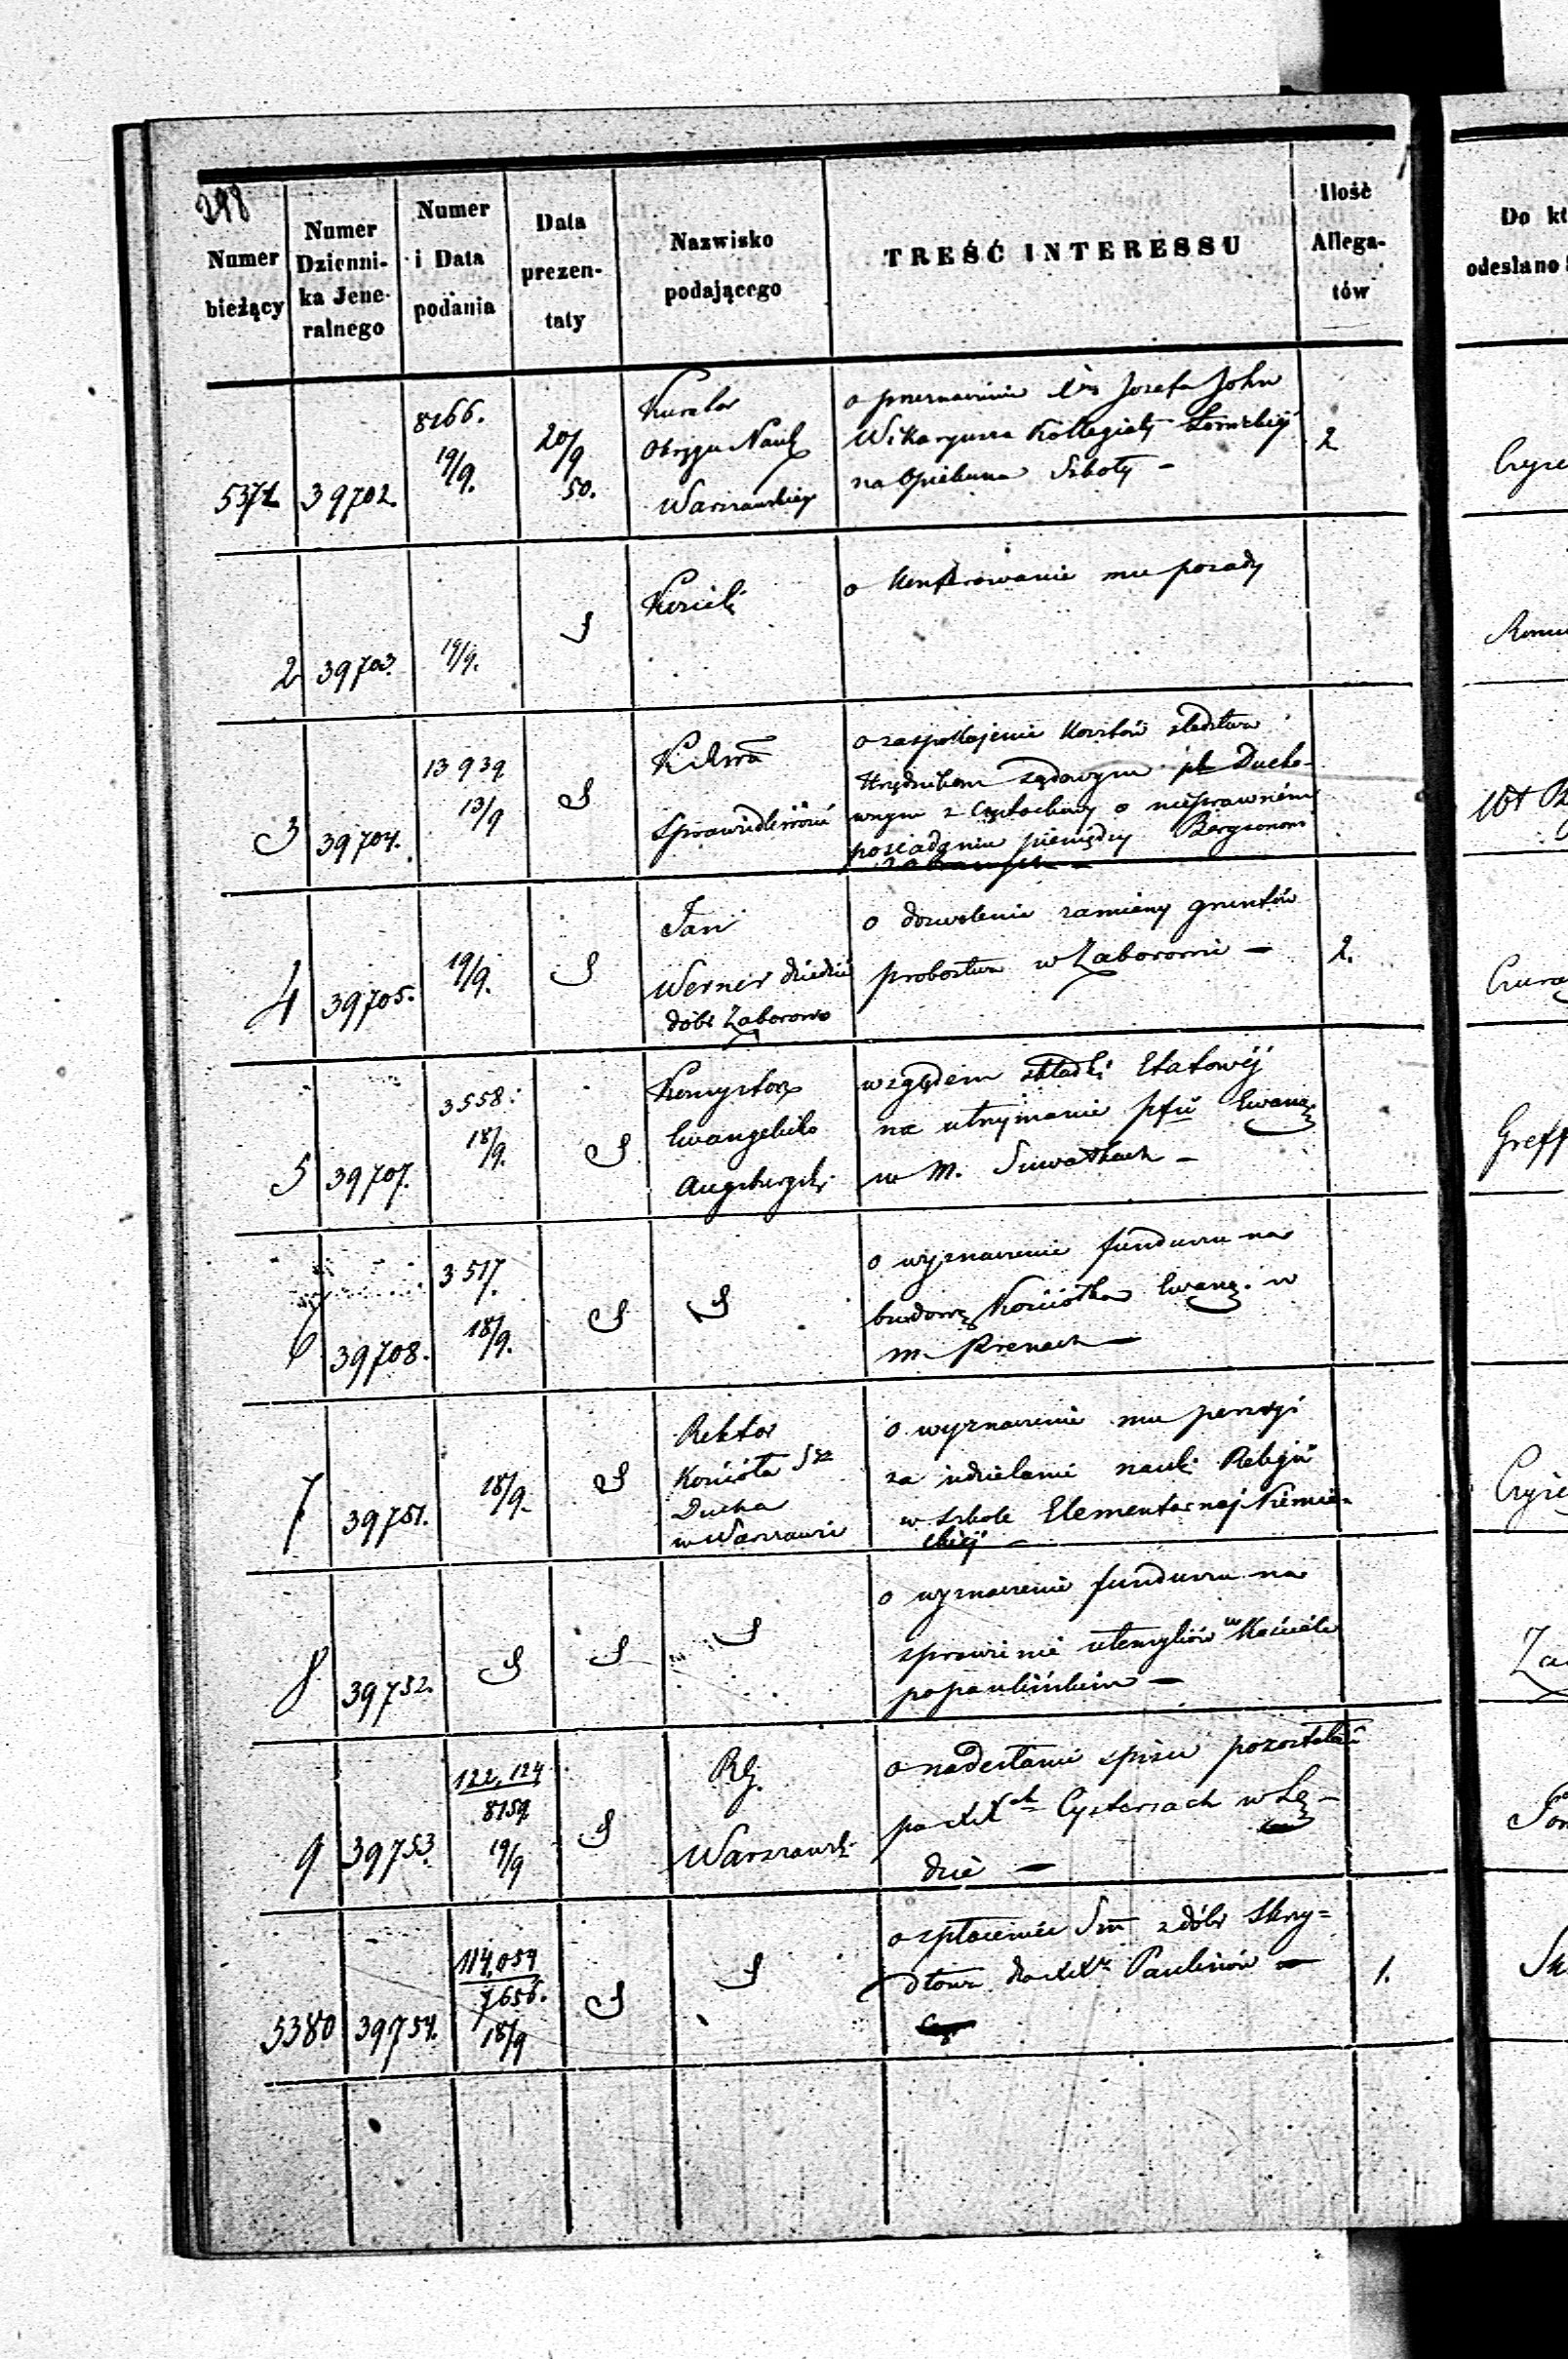 298
Numer bieżący
Numer Dzienni- ka Jene- ralnego
Numer i Data podania
Data prezen- taty
Nazwisko podającego
TREŚĆ INTERESSU
Ilość Allega- tów
Do kt
odesłano
5371
39702.
8166.
19/9.
20/9
50.
Kurator
Okręgu Nauk
Warszawskiego
o przeznaczenie Józefa John
Wikaryusza Kollegiaty Łowickiej
na Opiekuna Szkoły –
2
2
39703.
19/9.
o konferowanie mu posady
3
39704.
13939
13/9
Sprawiedliwości
o zaspokojenie kosztów śledztwa
Urzędnikom sądowym Ducho-
wnym z Częstochowy o nieprawném
posiadaniu pieniędzy Bergsonowi
4
39705.
19/9.
Jan
Werner dziedzic
dóbr Zaborowo
o dozwolenie zamiany gruntów
probostwa w Zaborowie –
2.
5
39707.
3558.
18/9.
Konsystorz
Ewangelicko
Augsburgski
względem składki Etatowéj
na utrzymanie Ewang
w M. Suwałkach –
Greff
6
39708.
3517.
18/9.
o wyznaczenie funduszu na
budowę Kościołka Ewang. w
m. Prenach –
7
39751.
18/9.
Rektor
Kościoła Sgo
Ducha
w Warszawie
o wyznaczenie mu pensyi
za udzielanie nauki Religii
w szkole Elementarnej Niemie-
ckiéj –
8
39752.
o wyznaczenie funduszu na
sprawienie utensyliów w Kościele
popaulińskim –
Za
9
39753.
122,124
8159
19/9
RG.
Warszawski
o nadesłanie spisu pozostałości
po XXch Cystersach w Lę-
dzie –
5380
39754.
114,054
7656.
18/9
o spłacenie Sm z dóbr Skrzy-
dłowa dla XX Paulinów –
1.